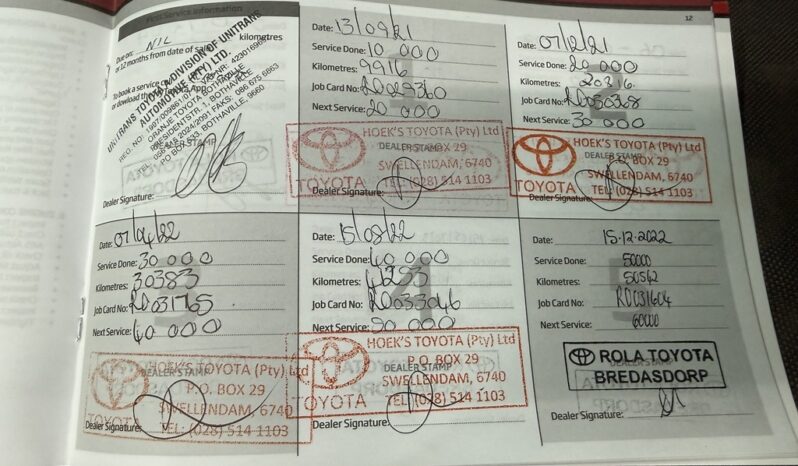 First Service Information
Due on: NIL kilometres
or 12 months from date of sale
To book a service
or download the App
UNITRANS TOYOTA A DIVISION OF UNITRANS
AUTOMOTIVE (PTY) LTD.
ORANJE TOYOTA BOTHAVILLE
PRESIDENTSTR. 1, BOTHAVILLE
BOTHAVILLE, 9660
DEALER STAMP
Dealer Signature:
Date: 13/09/21
Service Done: 10 000
Kilometres: 9916
Job Card No: RD029360
Next Service: 20 000
HOEK'S TOYOTA (Pty) Ltd
DEALER STAMP
P.O. BOX 29
SWELLENDAM, 6740
TEL: (028) 514 1103
TOYOTA
Dealer Signature:
12
Date: 07/12/21
Service Done: 20 000
Kilometres: 20316
Job Card No: RD030368
Next Service: 30 000
HOEK'S TOYOTA (Pty) Ltd
DEALER STAMP
P.O. BOX 29
SWELLENDAM, 6740
TEL: (028) 514 1103
TOYOTA
Dealer Signature:
Date: 07/04/22
Service Done: 30 000
Kilometres: 30383
Job Card No: RD031765
Next Service: 40 000
HOEK'S TOYOTA (Pty) Ltd
DEALER STAMP
P.O. BOX 29
SWELLENDAM, 6740
TEL: (028) 514 1103
TOYOTA
Dealer Signature:
Date: 15/08/22
Service Done: 40 000
Kilometres:
Job Card No: RD033046
Next Service: 50 000
HOEK'S TOYOTA (Pty) Ltd
DEALER STAMP
P.O. BOX 29
SWELLENDAM, 6740
TEL: (028) 514 1103
TOYOTA
Dealer Signature:
Date: 15-12-2022
Service Done: 50000
Kilometres: 50562
Job Card No: RD031604
Next Service: 60000
ROLA TOYOTA
BREDASDORP
Dealer Signature: